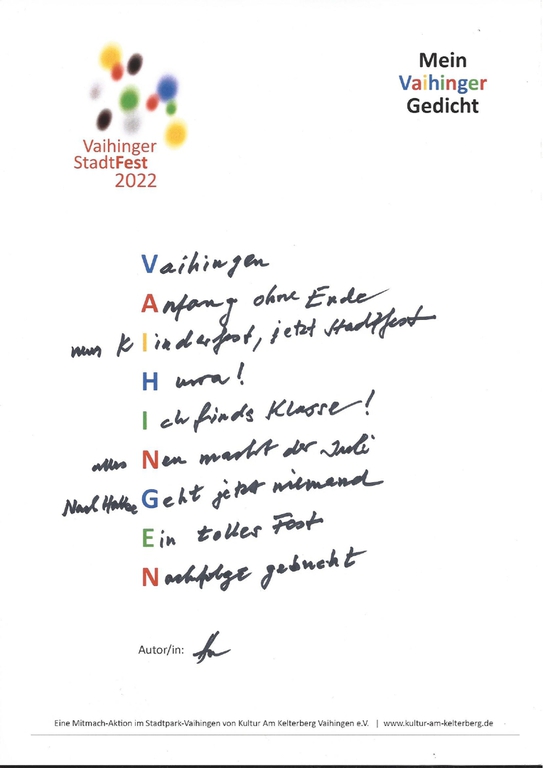 Mein
Vaihinger
Gedicht
Vaihinger
StadtFest
2022
Vaihingen
Anfang ohne Ende
Kinderfest, jetzt Stadtfest
Hurra!
Ich finds Klasse!
alles Neu macht der Juli
Nach Geht jetzt niemand
Ein tolles Fest
Nachfolge gebucht
Autor/in:
Eine Mitmach-Aktion im Stadtpark-Vaihingen von Kultur Am Kelterberg Vaihingen e.V. | www.kultur-am-kelterberg.de